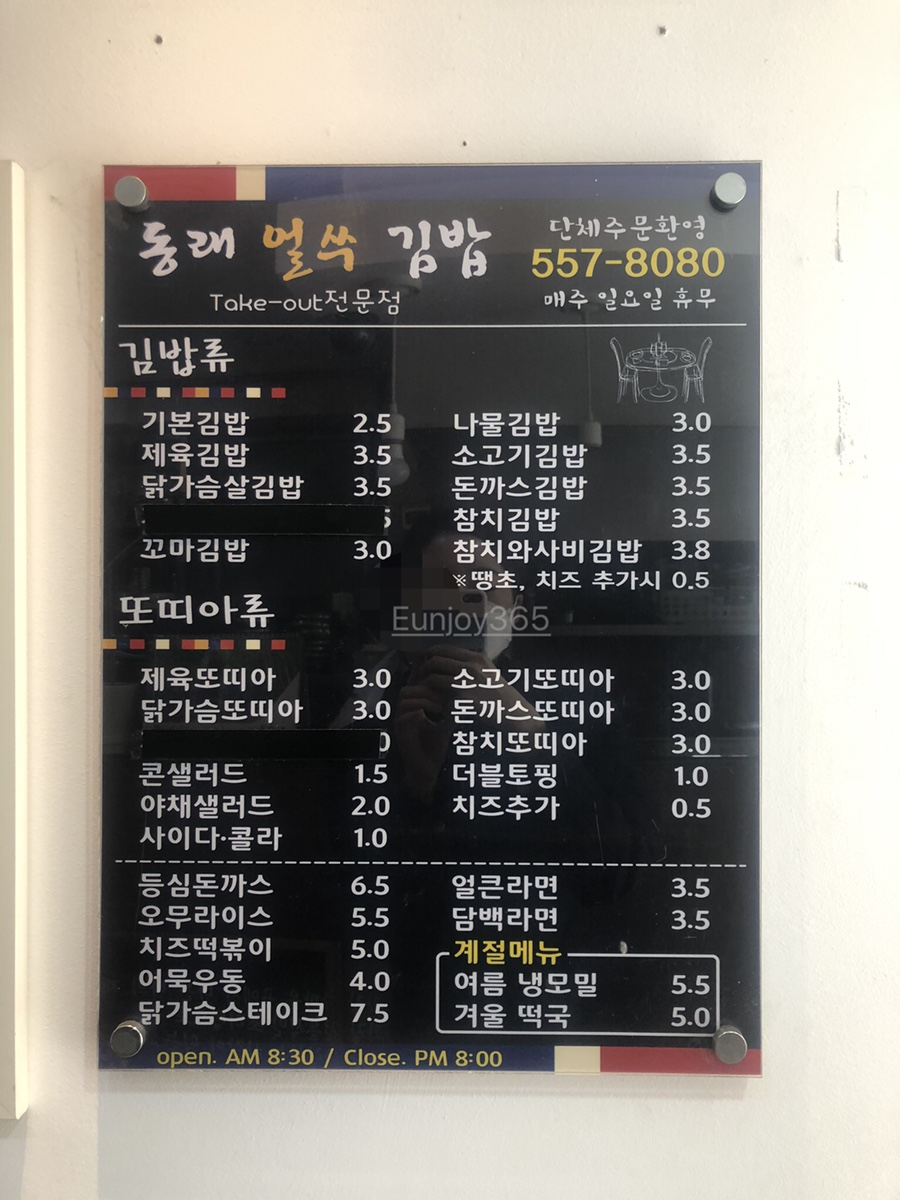 동래 얼쑤 김밥
Take-out전문점
단체주문환영
557-8080
매주 일요일 휴무
김밥류
기본김밥 2.5
제육김밥 3.5
닭가슴살김밥 3.5
꼬마김밥 3.0
나물김밥 3.0
소고기김밥 3.5
돈까스김밥 3.5
참치김밥 3.5
참치와사비김밥 3.8
※땡초, 치즈 추가시 0.5
Eunjoy365
또띠아류
제육또띠아 3.0
닭가슴또띠아 3.0
콘샐러드 1.5
야채샐러드 2.0
사이다·콜라 1.0
소고기또띠아 3.0
돈까스또띠아 3.0
참치또띠아 3.0
더블토핑 1.0
치즈추가 0.5
등심돈까스 6.5
오무라이스 5.5
치즈떡볶이 5.0
어묵우동 4.0
닭가슴스테이크 7.5
얼큰라면 3.5
담백라면 3.5
계절메뉴
여름 냉모밀 5.5
겨울 떡국 5.0
open. AM 8:30 / Close. PM 8:00